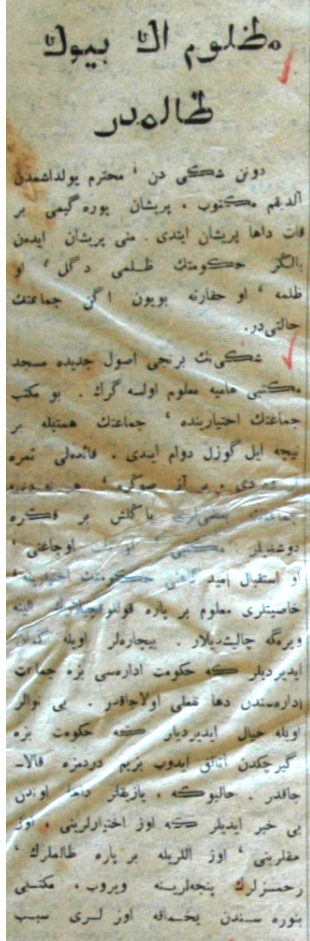 مظلوم اڭ بیوك
ظالمدر
دونن شكی دن ، محترم یولداشمدن
آلدیغم مكتوب ، پریشان یوره گیمی بر
قات داها پریشان ایتدی . منی پریشان ایدەن
یالڭز حكومتڭ ظلمی دگل ، او
ظلمه ، او حقارته بویون اگن جماعتڭ
حالتی‌در.
شكی‌نڭ برنجی اصول جدیده مسجد
مكتبی هامیه معلوم اولسه گرك . بو مكتب
جماعتڭ اختیارینده ، جماعتڭ همتیله بر
نیچه ایل گوزل دوام ایتدی . فائده‌لی ثمره
بر فكره
دوشدیلر . مكتبی ، او اوجاغنی ،
او استقبال امید گاهنی حكومتڭ اختیارینه ،
خاصیتلری معلوم بر پاره قوللوقچیلرڭ الینه
ویرمگه چالیشدیلار . بیچاره‌لر اویله گمان
ایدیردیلر كه حكومت اداره‌سی بزه جماعت
اداره‌سندن دها نفعلی اولاجاقدر . بی نوالر
اویله خیال ایدیردیلر كه حكومت بزه
گیرچكدن آتالق ایدوب بزیم دردمزه قالا‌ـ
جاقدر . حالبوكه ، یازیقلر داها اوندن
بی خبر ایدیلر كه اوز اختیارلرینی ، اوز
حقلرینی ، اوز اللریله بر پاره ظالملرڭ ،
رحمسزلرڭ پنجه‌لرینه ویروب ، مكتبی
بنوره سندن یخماقه اوز لری سبب